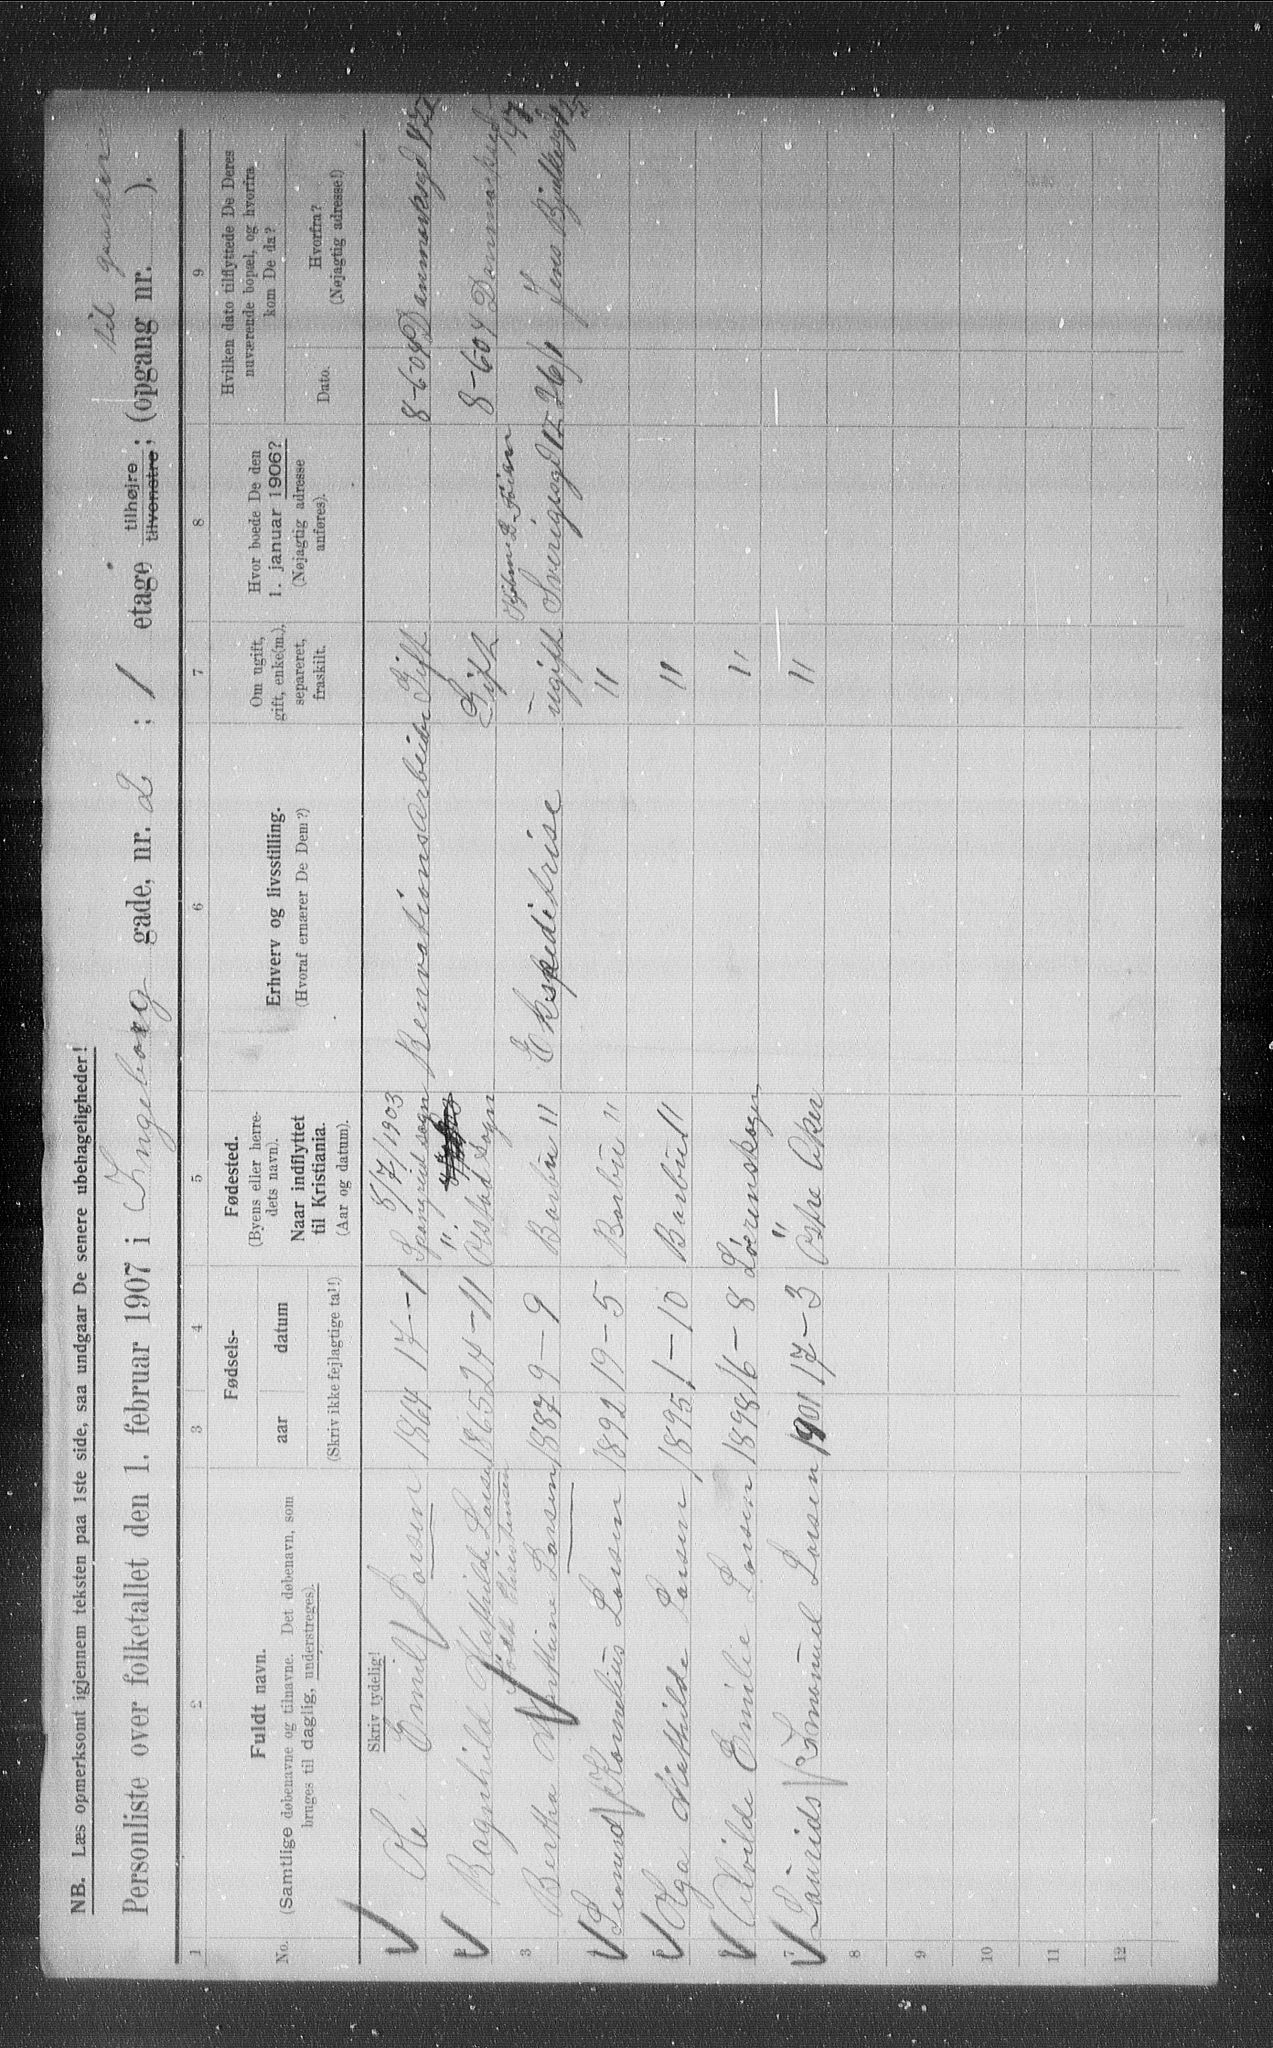 NB. Læs opmerksomt igjennem teksten paa 1ste side, saa undgaar De senere ubehageligheder!
til gaarden
Personliste over folketallet den 1. februar 1907 i Ingeborg gade, nr. 2 ; 1 etage tilhøjre tilvenstre ; (opgang nr. ).
1 2 3 4 5 6 7 8 9
No.
Fuldt navn.
(Samtlige døbenavne og tilnavne. Det døbenavn, som
bruges til daglig, understreges).
Fødsels-
aar datum
(Skriv ikke fejlagtige tal!)
Fødested.
(Byens eller herre-
dets navn).
Naar indflyttet
til Kristiania.
(Aar og datum).
Erhverv og livsstilling.
(Hvoraf ernærer De Dem?)
Om ugift,
gift, enke(m.),
separeret,
fraskilt.
Hvor boede De den
1. januar 1906?
(Nøjagtig adresse
anføres).
Hvilken dato tilflyttede De Deres
nuværende bopæl, og hvorfra
kom De da?
Dato.
Hvorfra?
(Nøjagtig adresse!)
Skriv tydelig!
8/7/1903
Ole Emil Larsen 1864 17--1 sogn Renovationsarbeider Gift 8-604 Danmarksgd
"
2 Ragnhild Mathilde Larsen 1865 24-11 sogn Gift 8-604
født Christensen
3 Bertha Larsen 1887 9-9 Barbu " Ekspeditrise ugift Sverigesgd 12 26/1 Jens Bjelkesgd
4 Kornelius Larsen 1892 19-5 Barbu " "
5 Aga Mathilde Larsen 1895 1-10 Barbu " "
6 Alvilde Emilie Larsen 1898 16-8 Lørenskogen "
"
7 Laurids Larsen 1901 17-3 Østre Aker "
8
9
10
11
12